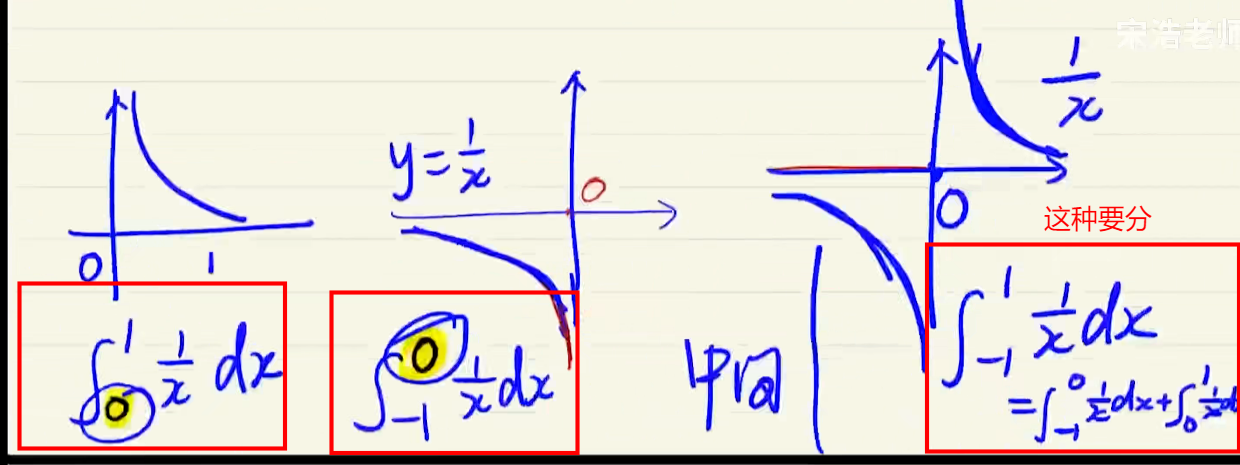 宋浩老师
0 1
∫₀¹ 1/x dx
y = 1/x
0
∫₋₁⁰ 1/x dx
1/x
0
这种要分
中间
∫₋₁¹ 1/x dx
= ∫₋₁⁰ 1/x dx + ∫₀¹ 1/x d